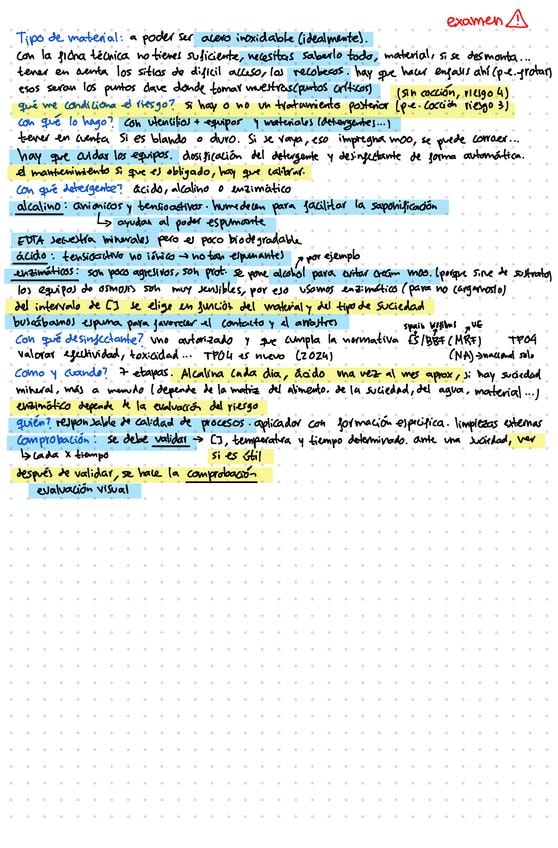 examen
Tipo de material: a poder ser acero inoxidable (idealmente).
Con la ficha técnica no tienes suficiente, necesitas saberlo todo, material, si se desmonta...
tener en cuenta los sitios de difícil acceso, los recobecos. hay que hacer énfasis ahí (p.e. frotar)
esos seran los puntos clave donde tomar muestras (puntos críticos) (sin cocción, riesgo 4)
qué me condiciona el riesgo? si hay o no un tratamiento posterior (p.e. cocción riesgo 3)
con qué lo hago? con utensilios + equipos y materiales (detergentes...)
tener en cuenta si es blando o duro. Si se raya, eso impregna moo, se puede corroer...
hay que cuidar los equipos. dosificación del detergente y desinfectante de forma automática.
el mantenimiento si que es obligado, hay que calibrar.
con qué detergente? ácido, alcalino o enzimático
alcalino: anionicos y tensioactivos. humedecen para facilitar la saponificación
↳ ayudan al poder espumante
EDTA secuestra minerales pero es poco biodegradable
ácido: tensioactivo no iónico → no tan espumantes) por ejemplo
enzimáticos: son poco agresivos, son prot. se pone alcohol para evitar crecim moo. (porque sirve de sustrato)
los equipos de osmosis son muy sensibles, por eso usamos enzimático (para no cargarnoslo)
del intervalo de [] se elige en función del material y del tipo de suciedad
buscábamos espuma para favorecer el contacto y el arrastre
Con qué desinfectante? uno autorizado y que cumpla la normativa ES/ (MRF) TP04
valorar efectividad, toxicidad... TP04 es nuevo (2024) (NA)→nacional solo
Como y cuando? 7 etapas. Alcalina cada dia, ácido una vez al mes aprox, si hay suciedad
mineral, más a menudo (depende de la matriz del alimento, de la suciedad, del agua, material...)
enzimático depende de la evaluación del riesgo
quién? responsable de calidad de procesos. aplicador con formación específica. limpiezas externas
Comprobación: se debe validar → [], temperatura y tiempo determinado. ante una suciedad, ver
↳ cada x tiempo si es útil
después de validar, se hace la comprobación
evaluación visual